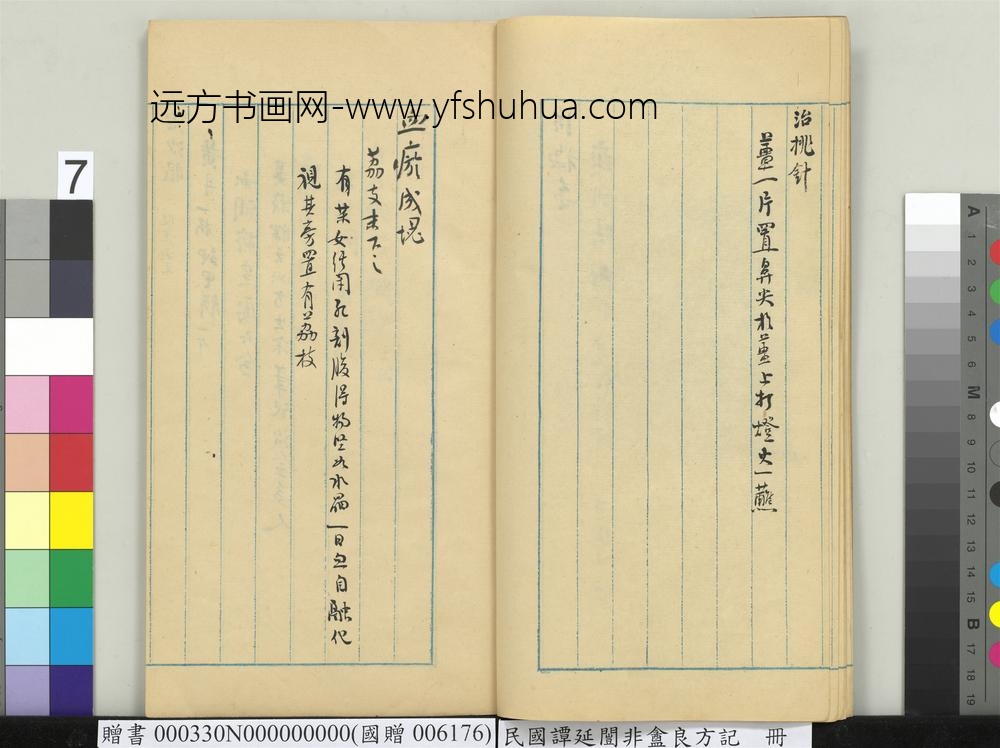 治挑針
薑一片置鼻尖於薑上打燈火一蘸
血瘀成塊
荔支末下之
有某女 剖腹得物 水 一日 自融化
視其旁置有荔枝
远方书画网-www.yfshuhua.com
7
A 1 2 3 4 5 6 M 8 9 10 11 12 13 14 15 B 17 18 19
贈書 000330N000000000(國贈 006176)
民國譚延闓非盦良方記 冊